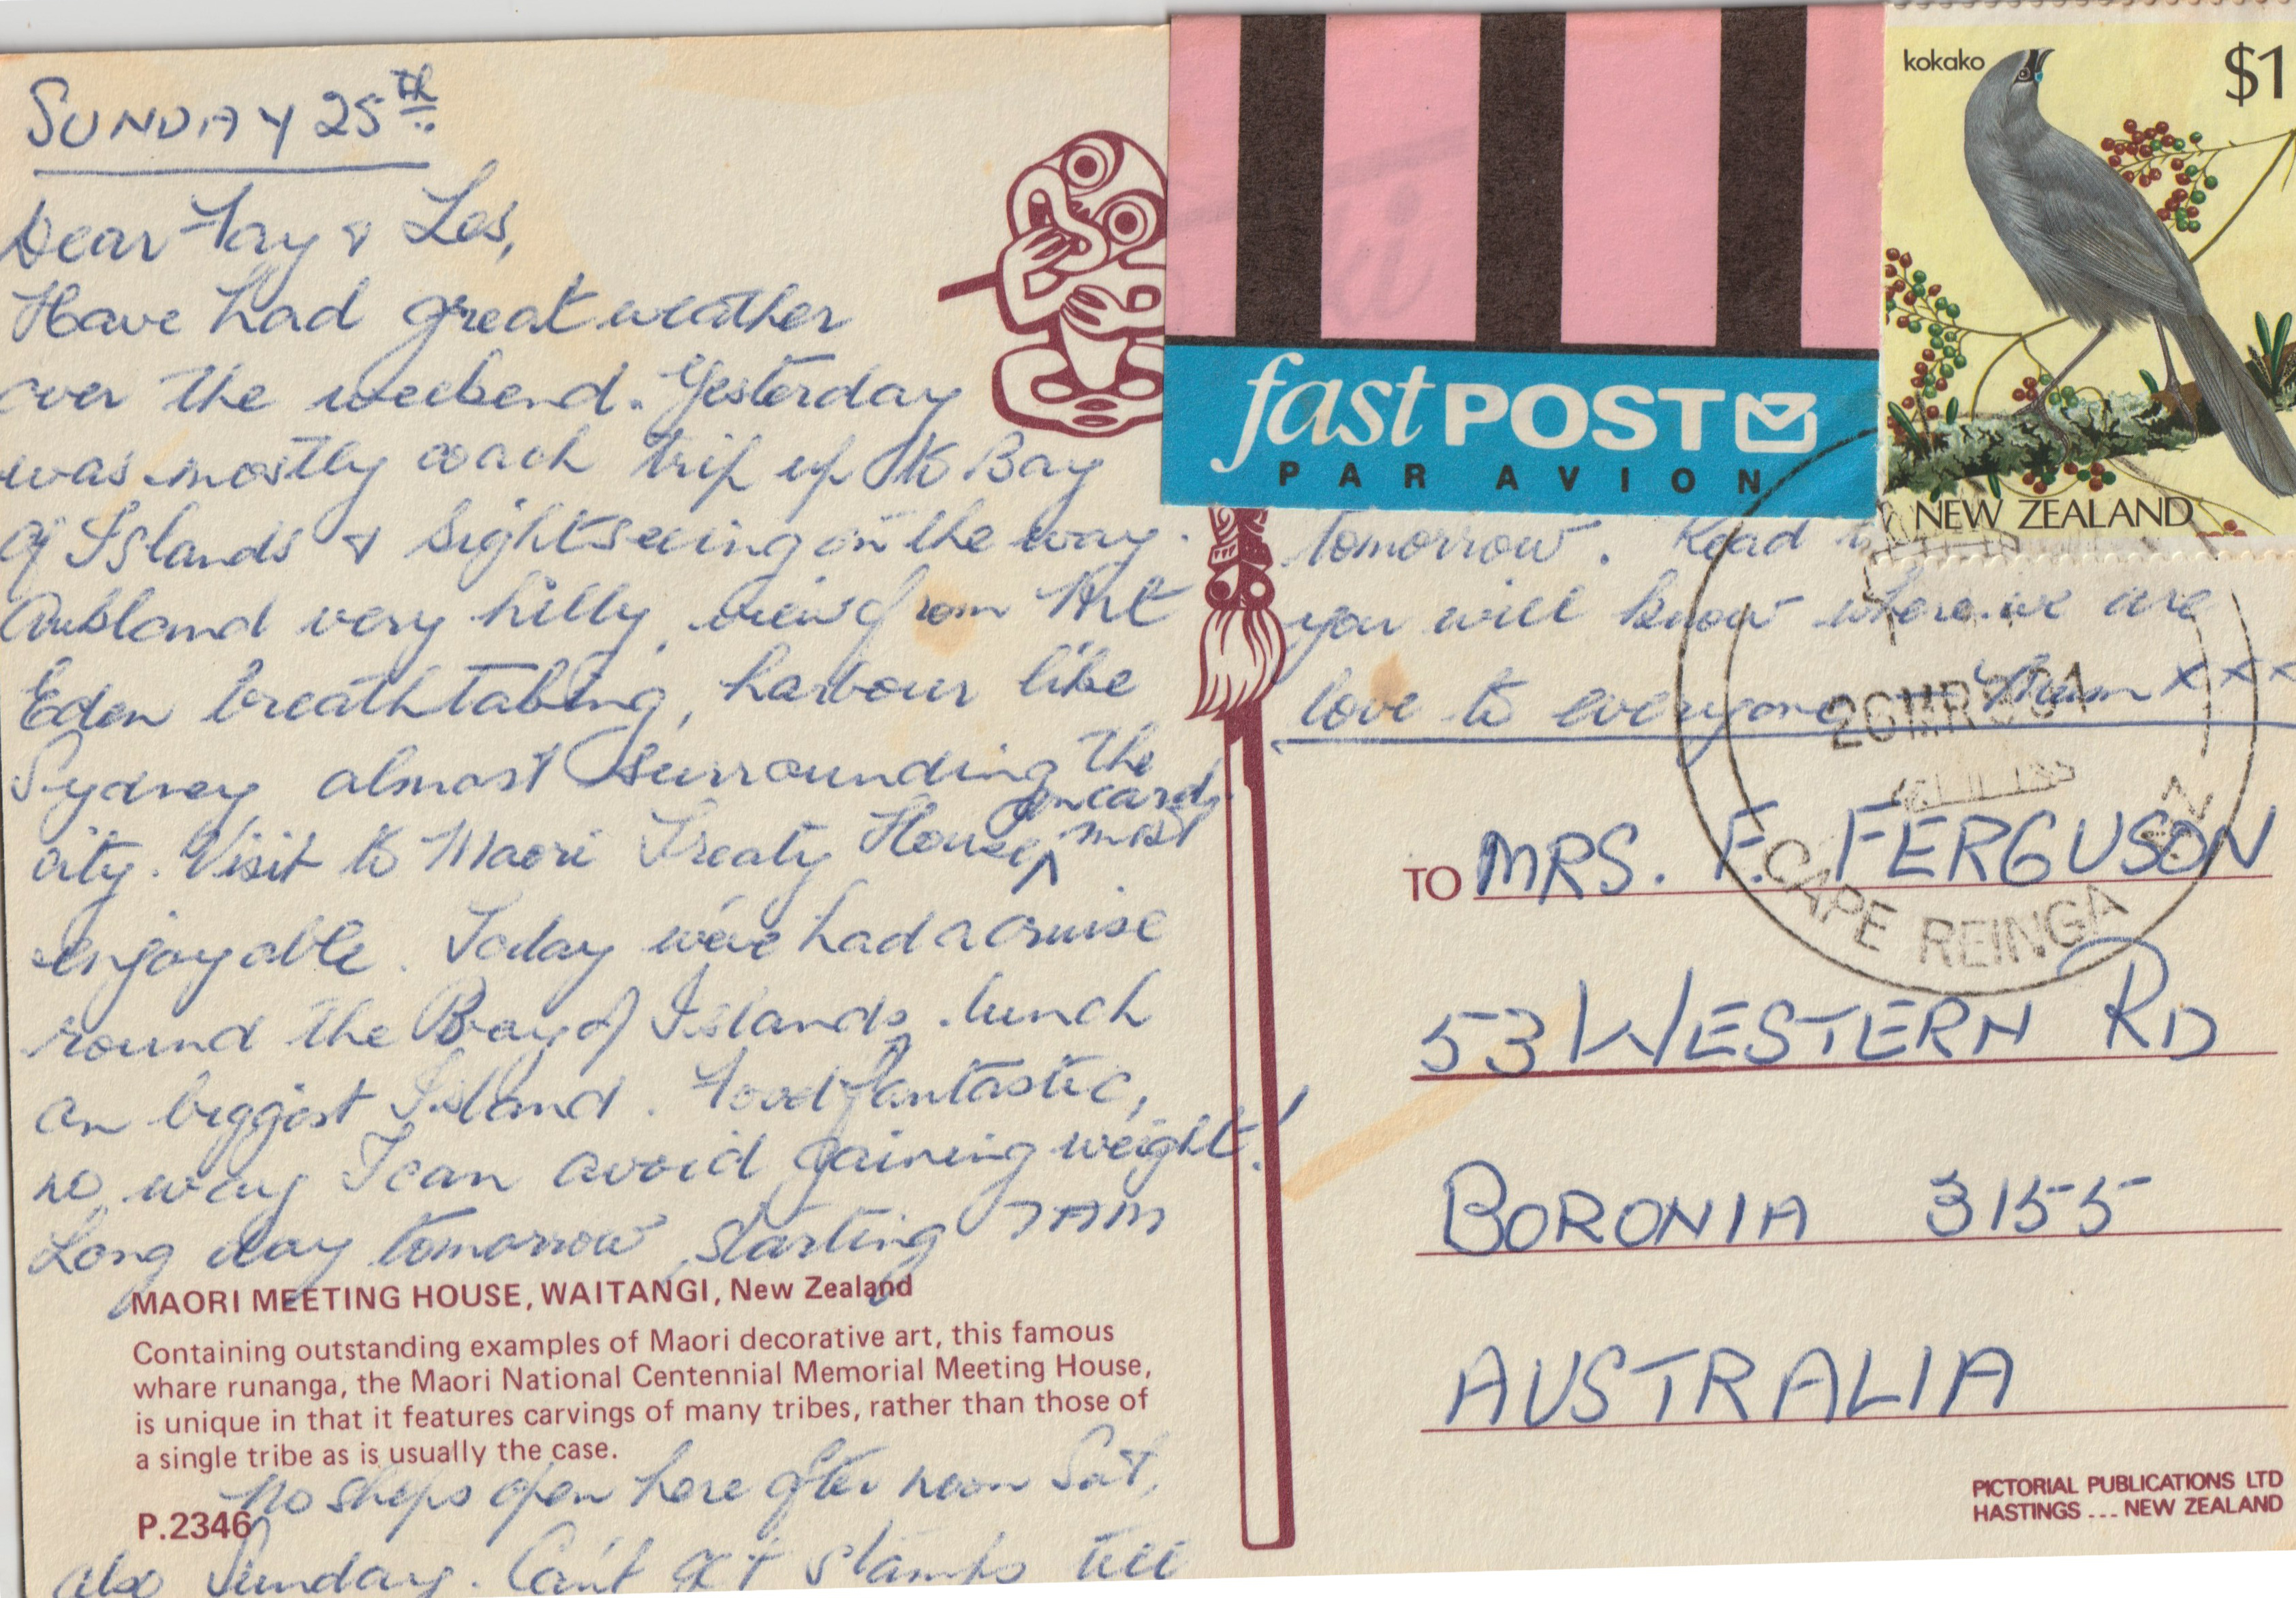 SUNDAY 25th
Dear Fay & Les,
Have had great weather
over the weekend. Yesterday
was mostly coach trip up to Bay
of Islands & sightseeing on the way.
Aukland very hilly, view from Mt
Eden breathtaking, harbour like
Sydney almost surrounding the
city. Visit to Maori Treaty House on card, most
enjoyable. Today we've had a cruise
round the Bay of Islands, lunch
on biggest Island. Food fantastic,
no way I can avoid gaining weight!
Long day tomorrow, starting 7AM
MAORI MEETING HOUSE, WAITANGI, New Zealand
Containing outstanding examples of Maori decorative art, this famous
whare runanga, the Maori National Centennial Memorial Meeting House,
is unique in that it features carvings of many tribes, rather than those of
a single tribe as is usually the case.
No shops open here after noon Sat,
P.2346
also Sunday. Can't get stamps till
fastPOST
PAR AVION
kokako
$1
NEW ZEALAND
tomorrow. Read
you will know where we are
love to everyone Mum xxx
CAPE REINGA
TO MRS. F. FERGUSON
53 WESTERN RD
BORONIA 3155
AUSTRALIA
PICTORIAL PUBLICATIONS LTD
HASTINGS ... NEW ZEALAND